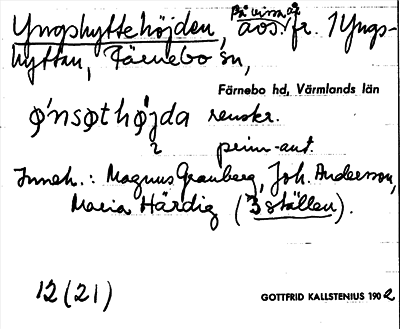 Yngshyttehöjden, på vissa aos. fr. 1 Yngs-
hyttan, Färnebo sn,
Färnebo hd, Värmlands län
ǿnsøthǿjda renskr.
prim-ant.
Inneh.: Magnus Granberg, Joh. Anderson,
Maria Härdig (3 ställen).
12 (21)
GOTTFRID KALLSTENIUS 1902